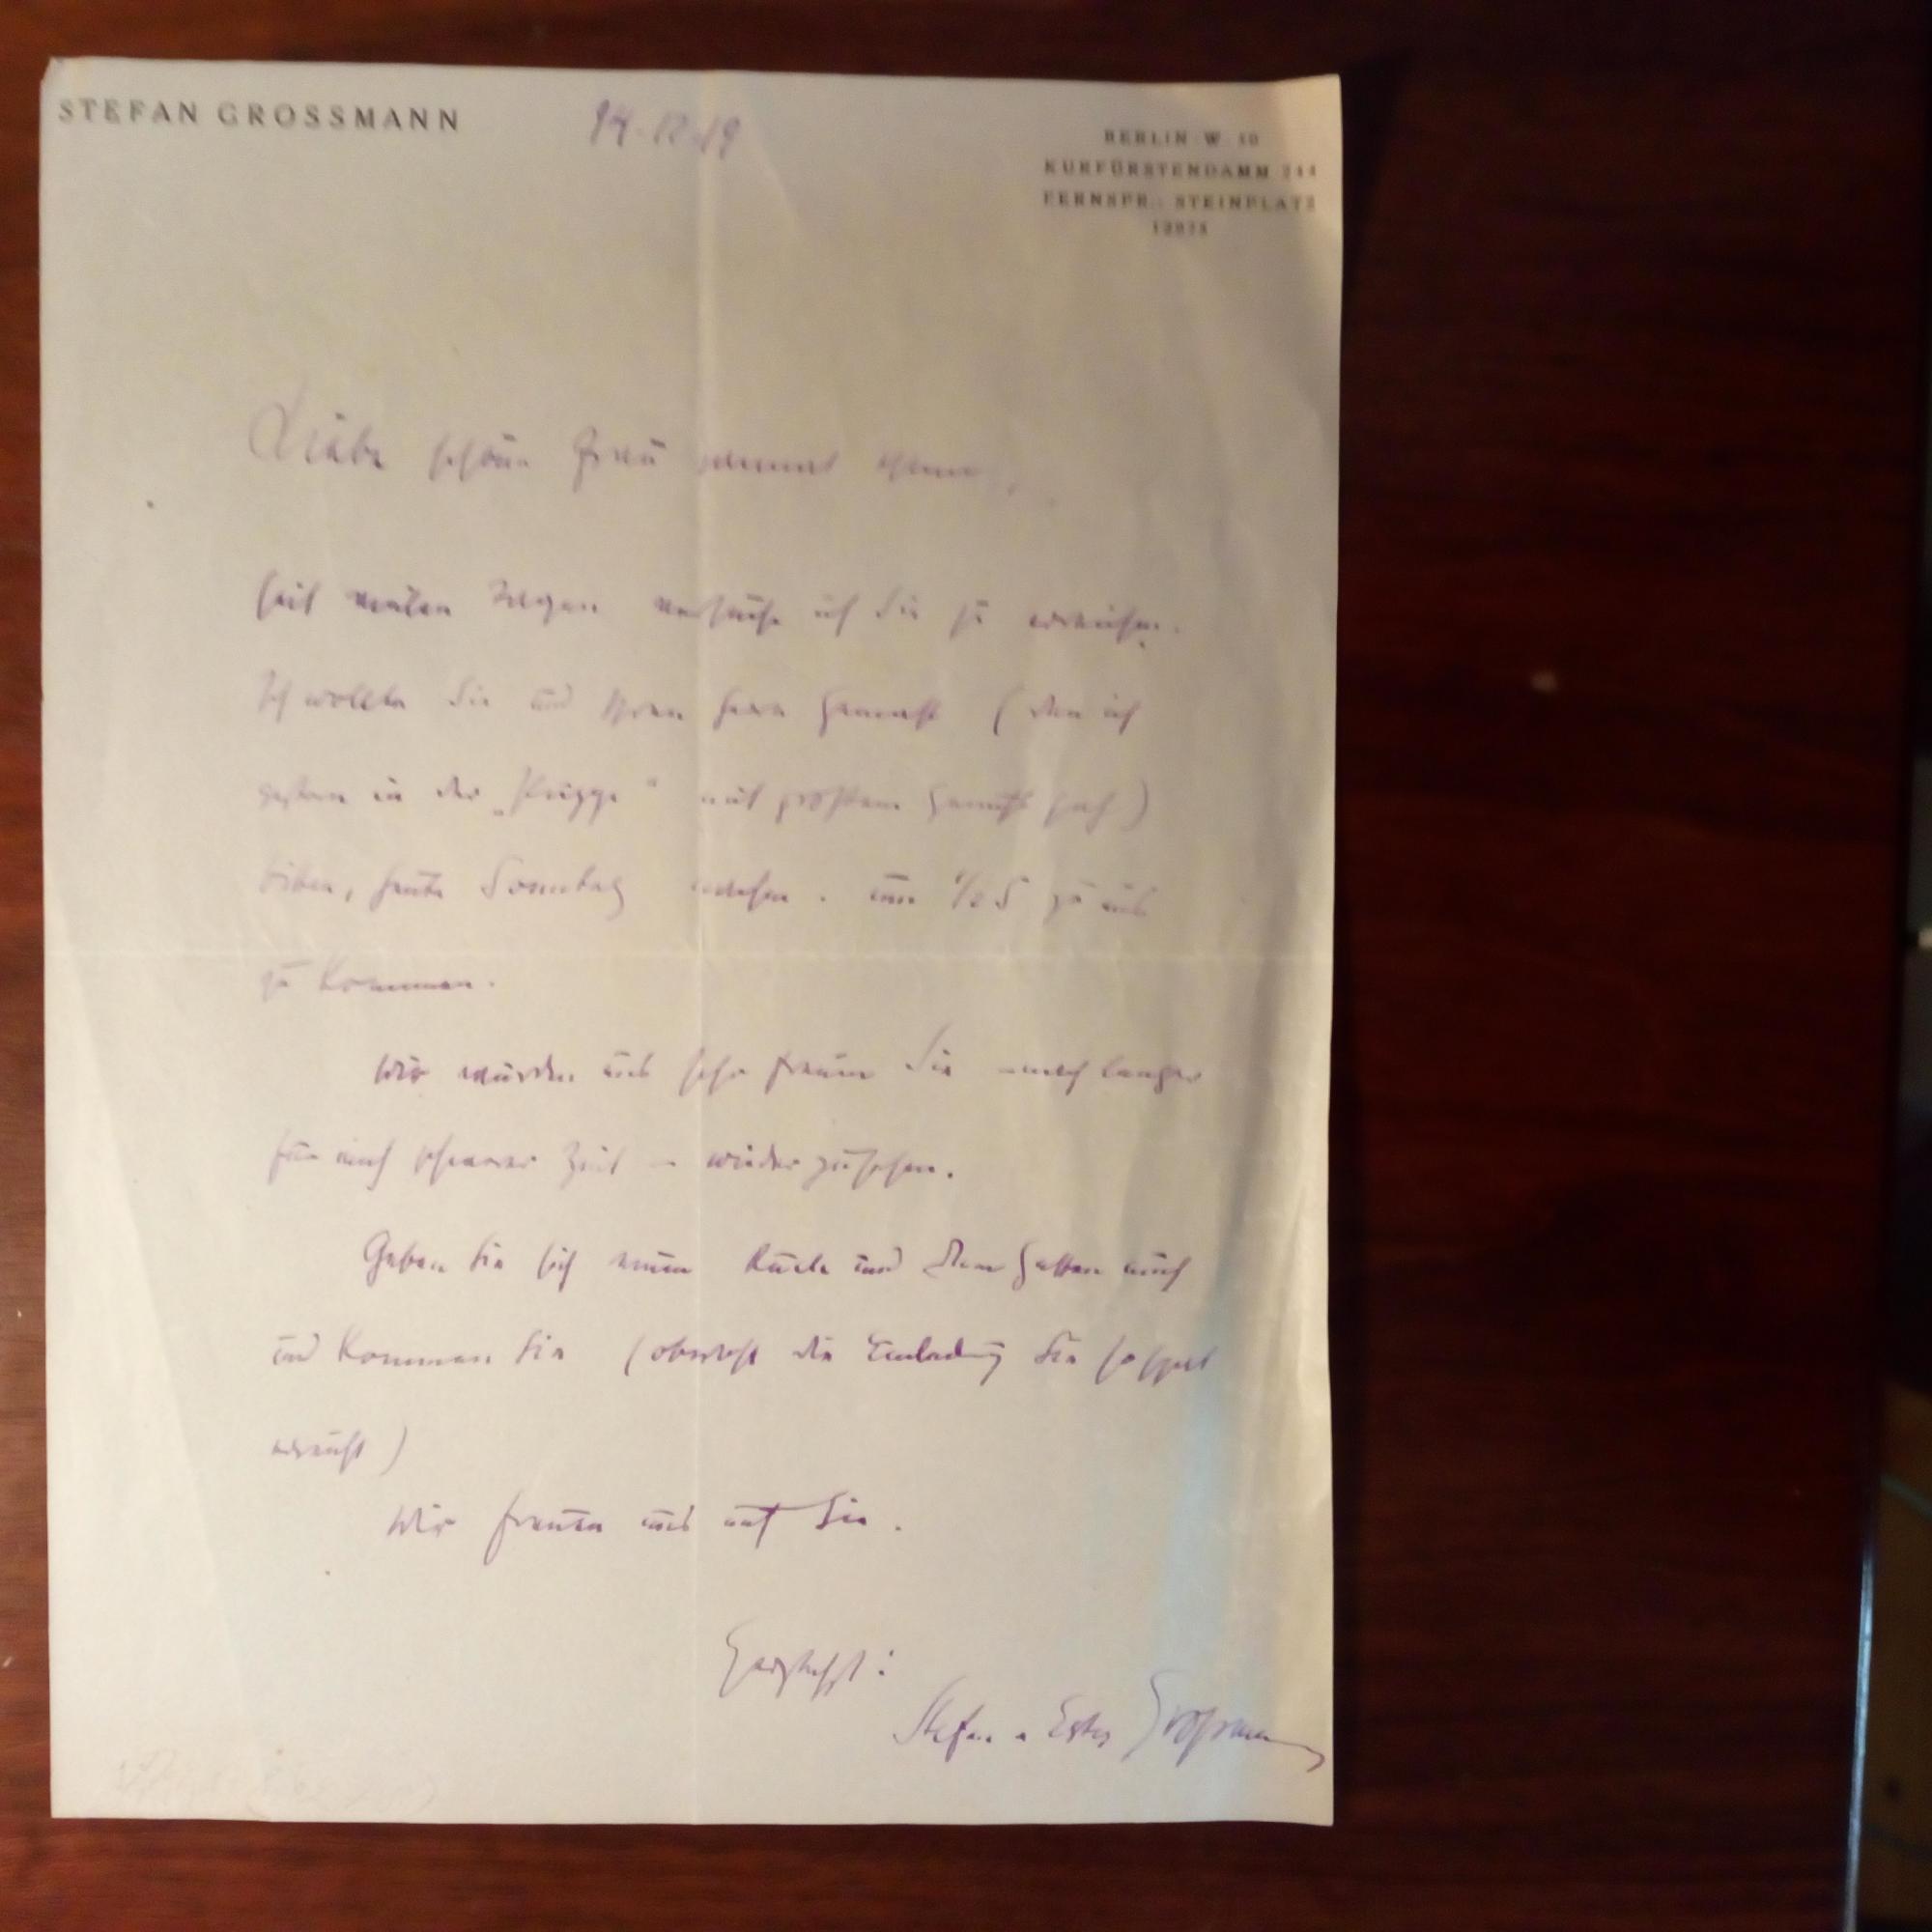 STEFAN GROSSMANN
14.12.19
BERLIN W 50
KURFÜRSTENDAMM 244
FERNSPR.: STEINPLATZ
Liebe schöne Frau
seit vielen Tagen versuche ich Sie zu erreichen.
Ich wollte Sie und Ihren Herrn Gemahl (den ich
gestern in der „ “ mit größtem Genuß sah)
bitten, heute Sonntag um ½ 5 zu uns
zu kommen.
Wir würden uns sehr freuen Sie – nach langer
für mich schwerer Zeit – wiederzusehen.
Geben Sie sich einen Ruck und dem Gatten auch
und kommen Sie (obwohl die Einladung Sie so spät
erreicht)
Wir freuen uns auf Sie.
Herzlichst:
Stefan u Ester Großmann